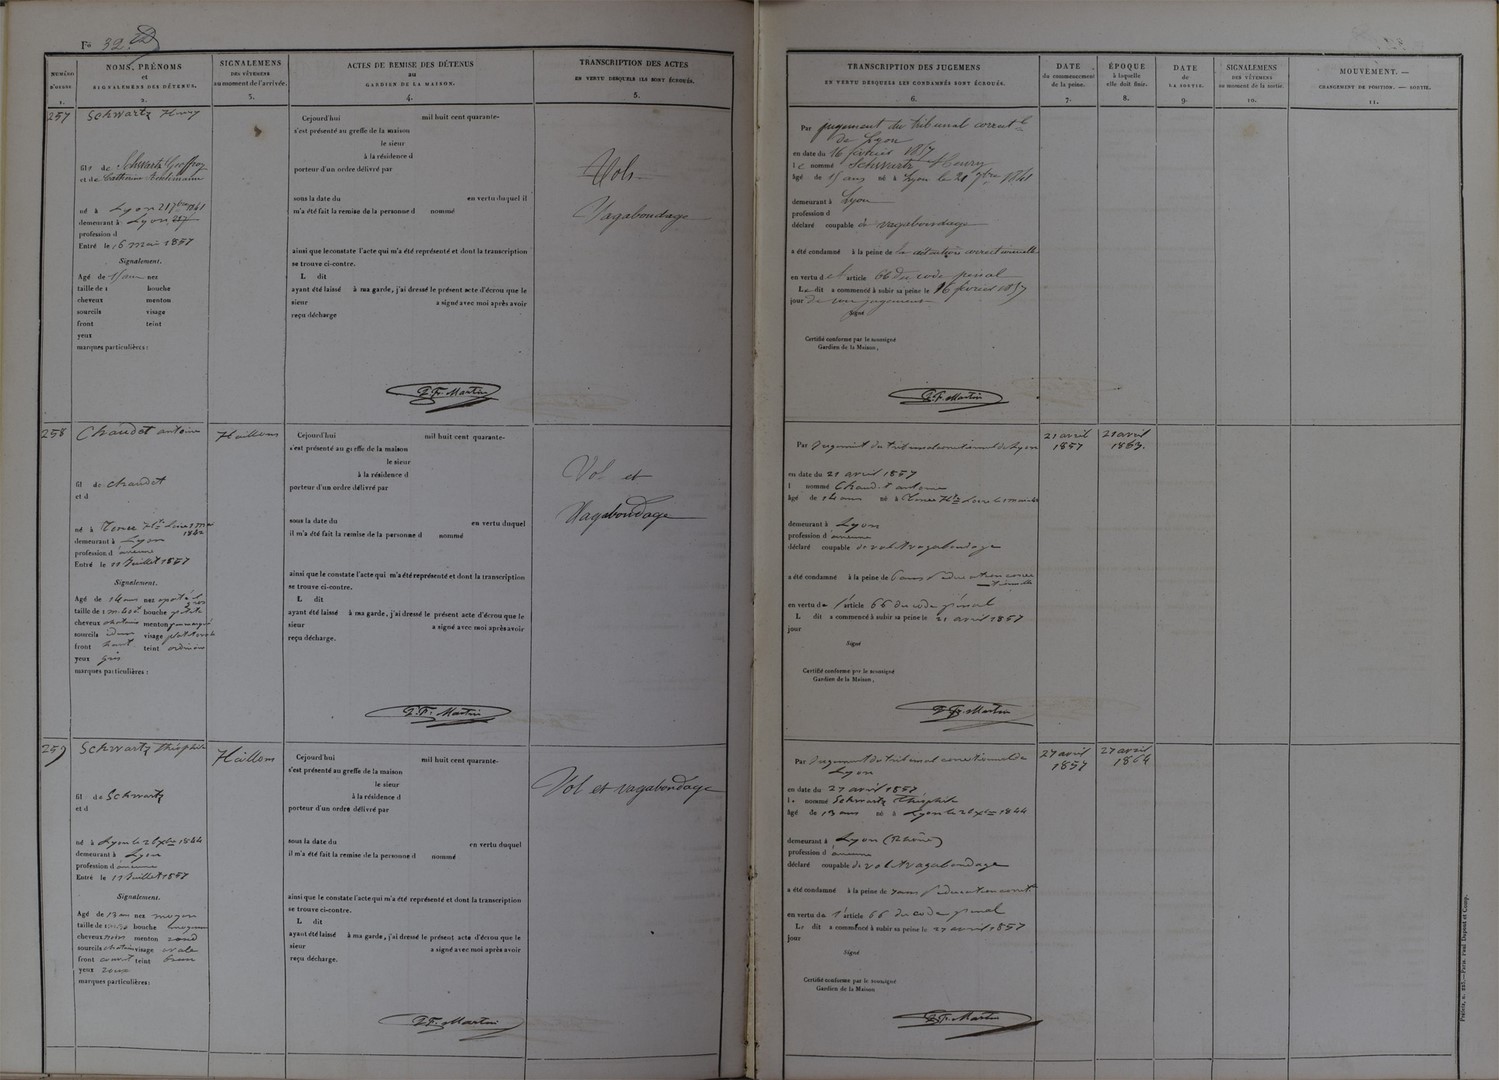 Fo 32
NUMÉRO D'ORDRE 1.
NOMS, PRÉNOMS et SIGNALEMENS DES DÉTENUS. 2.
SIGNALEMENS DES VÊTEMENS au moment de l'arrivée. 3.
ACTES DE REMISE DES DÉTENUS au GARDIEN DE LA MAISON. 4.
TRANSCRIPTION DES ACTES EN VERTU DESQUELS ILS SONT ÉCROUÉS. 5.
TRANSCRIPTION DES JUGEMENS EN VERTU DESQUELS LES CONDAMNÉS SONT ÉCROUÉS. 6.
DATE du commencement de la peine. 7.
ÉPOQUE à laquelle elle doit finir. 8.
DATE de LA SORTIE. 9.
SIGNALEMENS DES VÊTEMENS au moment de la sortie. 10.
MOUVEMENT. — CHANGEMENT DE POSITION. — SORTIE. 11.
257
Schwartz Henry
fils de Schwartz Geoffroy
et de Catherine
né à Lyon 21 7bre 1841
demeurant à Lyon
profession d
Entré le 16 mai 1857
Signalement.
Agé de 15 ans nez
taille de 1 bouche
cheveux menton
sourcils visage
front teint
yeux
marques particulières :
Cejourd'hui mil huit cent quarante-
s'est présenté au greffe de la maison
le sieur
à la résidence d
porteur d'un ordre délivré par
sous la date du en vertu duquel il
m'a été fait la remise de la personne d nommé
ainsi que le constate l'acte qui m'a été représenté et dont la transcription
se trouve ci-contre.
L dit
ayant été laissé à ma garde, j'ai dressé le présent acte d'écrou que le
sieur a signé avec moi après avoir
reçu décharge
Martin
Vagabondage
Par jugement du tribunal correctl
de Lyon
en date du 16 février 1857
le nommé Schwartz Henry
âgé de 15 ans né à Lyon le 21 7bre 1841
demeurant à Lyon
profession d
déclaré coupable de vagabondage
a été condamné à la peine de la détention correctionnelle
en vertu de l' article 66 du code pénal
Le dit a commencé à subir sa peine le 16 février 1857
jour de son jugement
Signé
Certifié conforme par le soussigné
Gardien de la Maison,
Martin
258
Chaudet antoine
Haillons
fil de Chaudet
et d
né à
1842
demeurant à Lyon
profession d aucune
Entré le 11 Juillet 1857
Signalement.
Agé de 14 ans nez
taille de 1 bouche petite
cheveux chatains menton
sourcils visage
front haut teint ordinaire
yeux gris
marques particulières :
Cejourd'hui mil huit cent quarante-
s'est présenté au greffe de la maison
le sieur
à la résidence d
porteur d'un ordre délivré par
sous la date du en vertu duquel
il m'a été fait la remise de la personne d nommé
ainsi que le constate l'acte qui m'a été représenté et dont la transcription
se trouve ci-contre.
L dit
ayant été laissé à ma garde, j'ai dressé le présent acte d'écrou que le
sieur a signé avec moi après avoir
reçu décharge.
Martin
Vol et
Vagabondage
Par Jugement du tribunal correctionnel de Lyon
en date du 21 avril 1857
l nommé Chaudet antoine
âgé de 14 ans né à
demeurant à Lyon
profession d aucune
déclaré coupable de vol et vagabondage
a été condamné à la peine de 6 ans d'éducation correc
tionnelle
en vertu de l'article 66 du code pénal
L dit a commencé à subir sa peine le 21 avril 1857
jour
Signé
Certifié conforme par le soussigné
Gardien de la Maison,
Martin
21 avril
1857
21 avril
1863.
259
Schwartz Théophile
Haillons
fil de Schwartz
et d
né à Lyon le 1844
demeurant à Lyon
profession d aucune
Entré le 11 Juillet 1857
Signalement.
Agé de 13 ans nez moyen
taille de 1 bouche moyenne
cheveux noirs menton rond
sourcils chatain visage ovale
front couvert teint brun
yeux roux
marques particulières :
Cejourd'hui mil huit cent quarante-
s'est présenté au greffe de la maison
le sieur
à la résidence d
porteur d'un ordre délivré par
sous la date du en vertu duquel
il m'a été fait la remise de la personne d nommé
ainsi que le constate l'acte qui m'a été représenté et dont la transcription
se trouve ci-contre.
L dit
ayant été laissé à ma garde, j'ai dressé le présent acte d'écrou que le
sieur a signé avec moi après avoir
reçu décharge.
Martin
Vol et vagabondage
Par Jugement du tribunal correctionnel de
Lyon
en date du 27 avril 1857
le nommé Schwartz Théophile
âgé de 13 ans né à Lyon le 1844
demeurant à Lyon (Rhône)
profession d aucune
déclaré coupable de vol et vagabondage
a été condamné à la peine de 7 ans d'éducation correct
en vertu de l'article 66 du code pénal
Le dit a commencé à subir sa peine le 27 avril 1857
jour
Signé
Certifié conforme par le soussigné
Gardien de la Maison
Martin
27 avril
1857
27 avril
1864